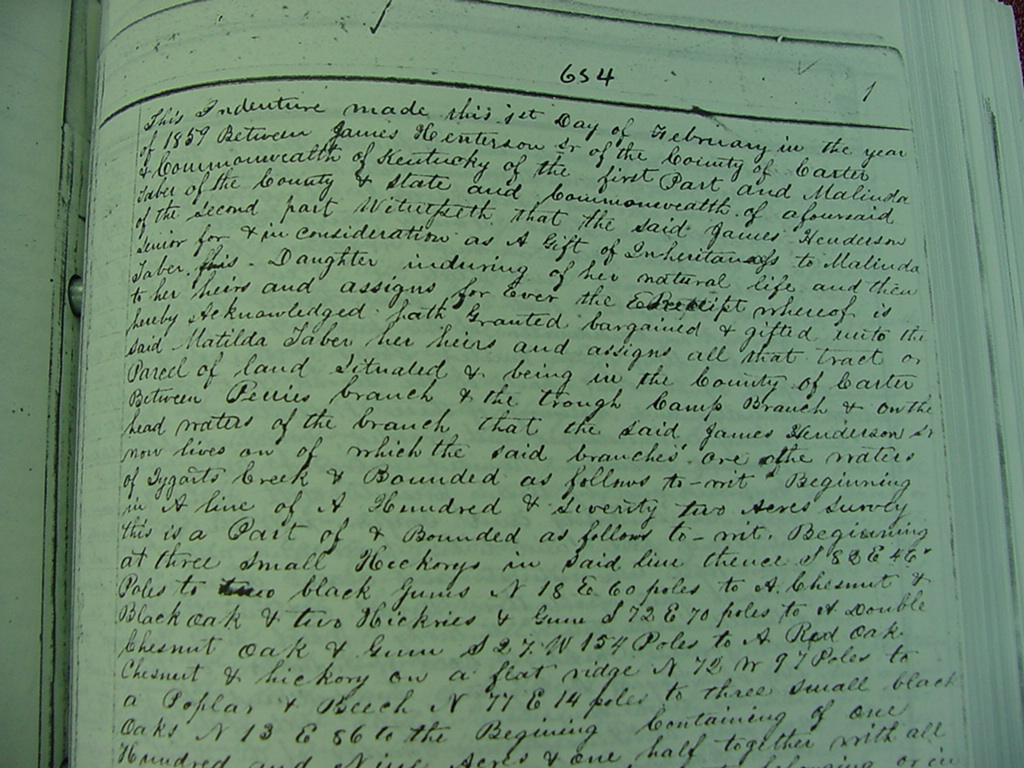 654
1
This Indenture made this 1st Day of February in the year
of 1859 Between James Henterson Sr of the County of Carter
& Commonwealth of Kentucky of the first Part and Malinda
Taber of the County & State and Commonwealth of afoursaid
of the second part Witnesseth that the said James Henderson
Senior for & in consideration as A Gift of Inheritances to Malinda
Taber his Daughter induring of her natural life and then
to her heirs and assigns for Ever the Receipt whereof is
hereby Acknowledged hath Granted bargained & gifted unto the
said Matilda Taber her heirs and assigns all that tract or
Parcel of land Situated & being in the County of Carter
Between Perries branch & the trough Camp Branch & on the
head waters of the branch that the said James Henderson Sr
now lives on of which the said branches are the waters
of Tygarts Creek & Bounded as follows to-wit Beginning
in A line of A Hundred & Seventy two Acres Survey
this is a Part of & Bounded as follows to-wit. Beginning
at three small Hickorys in said line thence S 82 E 46
Poles to two black Gums N 18 E 60 poles to A Chesnut &
Black oak & two Hickries & Gum S 72 E 70 poles to A Double
Chesnut oak & Gum S 27 W 154 Poles to A Red oak
Chesnut & hickory on a flat ridge N 72 W 97 Poles to
a Poplar & Beech N 77 E 14 poles to three small black
oaks N 13 E 86 to the Begining Containing of one
Hundred and Nine Acres & one half together with all
belonging or in